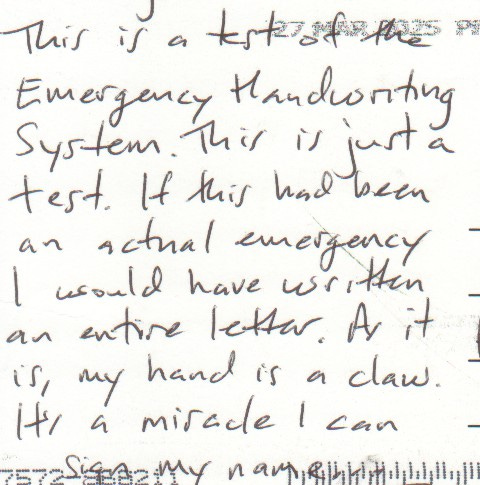 27 MAR 2025 PM
This is a test of the
Emergency Handwriting
System. This is just a
test. If this had been
an actual emergency
I would have written
an entire letter. As it
is, my hand is a claw.
It's a miracle I can
sign my name